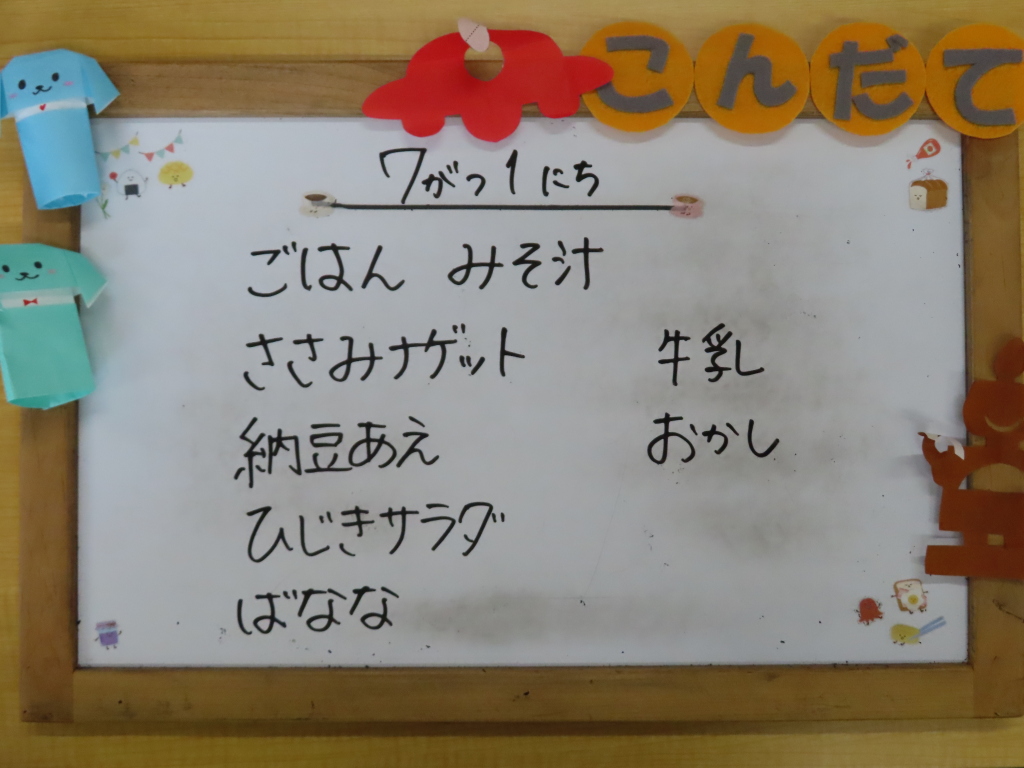 こんだて
7がつ1にち
ごはん みそ汁
ささみナゲット
納豆あえ
ひじきサラダ
ばなな
牛乳
おかし